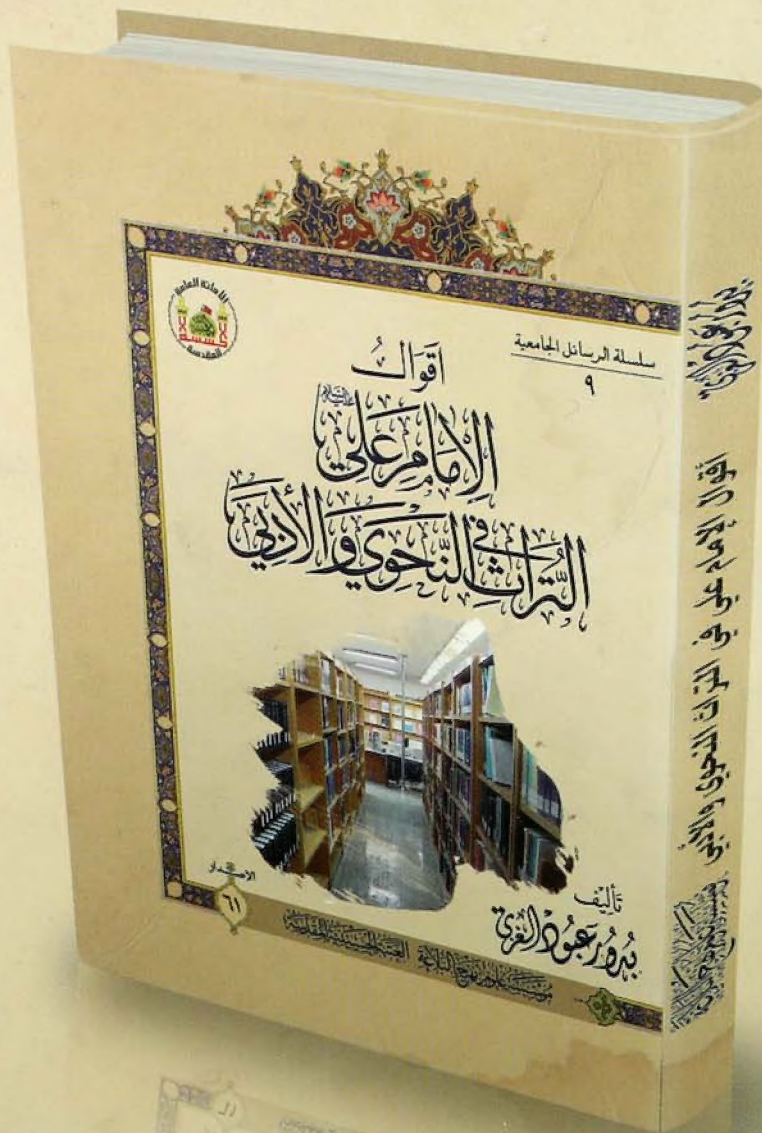 الأمانة العامة
للعتبة الحسينية المقدسة
سلسلة الرسائل الجامعية
٩
أقوال
الإمام علي
عليه السلام
في التراث النحوي والأدبي
تأليف
بدور عبود الغزي
الاصدار
٦١
مؤسسة علوم نهج البلاغة العتبة الحسينية المقدسة
أقوال الإمام علي في التراث النحوي والأدبي